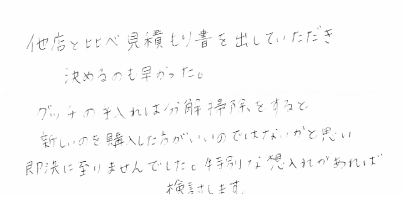 他店と比べ見積もり書を出していただき
決めるのも早かった。
グッチの手入れは分解掃除をすると
新しいのを購入した方がいいのではないかと思い
即決に至りませんでした。特別な想入れがあれば
検討します。